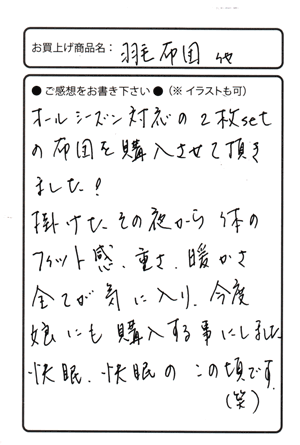 お買上げ商品名： 羽毛布団 他
● ご感想をお書き下さい ●（※ イラストも可）
オールシーズン対応の2枚set
の布団を購入させて頂き
ました！
掛けたその夜から 体の
フィット感、重さ、暖かさ
全てが気に入り、今度
娘にも購入する事にしました
快眠、快眠の この頃です
(笑)